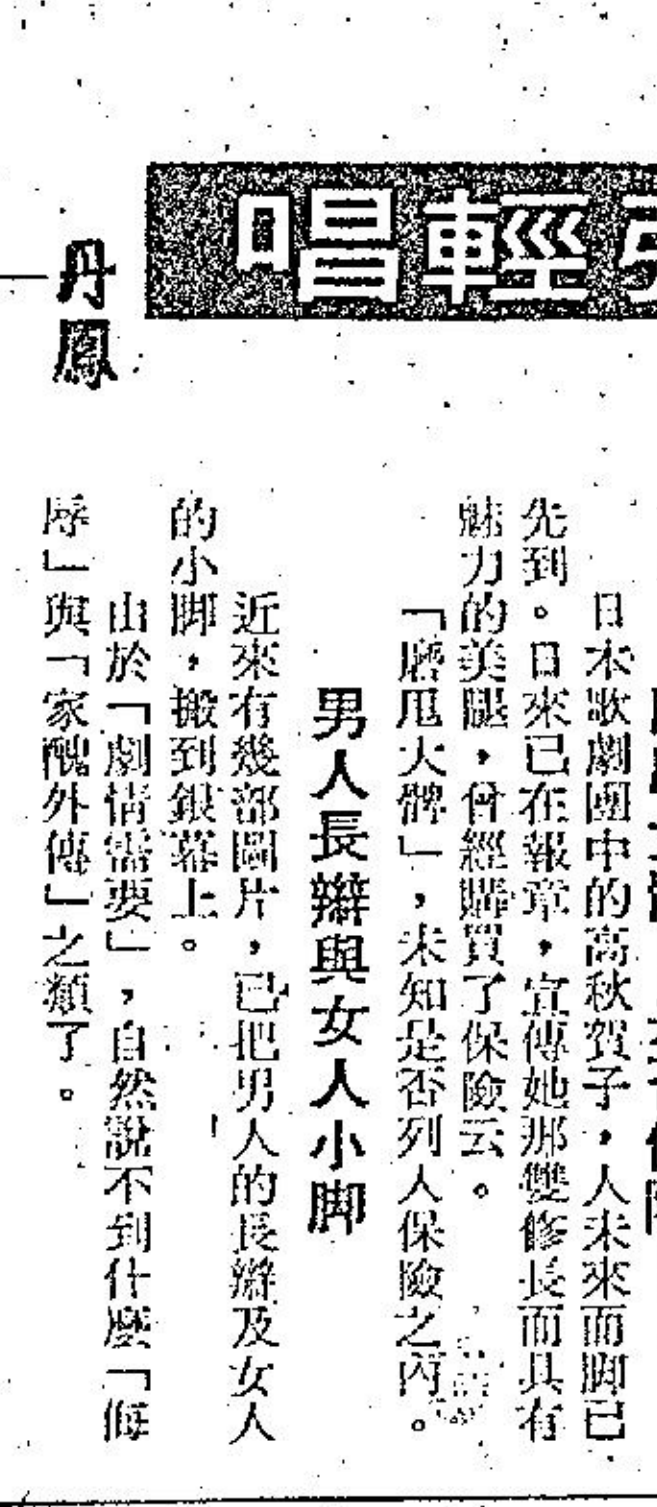 輕唱
丹鳳
日本歌劇團中的高秋賀子，人未來而脚已
先到。日來已在報章，宣傳她那雙修長而具有
魅力的美腿，曾經購買了保險云。
「磨甩大髀」，未知是否列入保險之內。
男人長辮與女人小脚
近來有幾部圖片，已把男人的長辮及女人
的小脚，搬到銀幕上。
由於「劇情需要」，自然說不到什麼「侮
辱」與「家醜外傳」之類了。